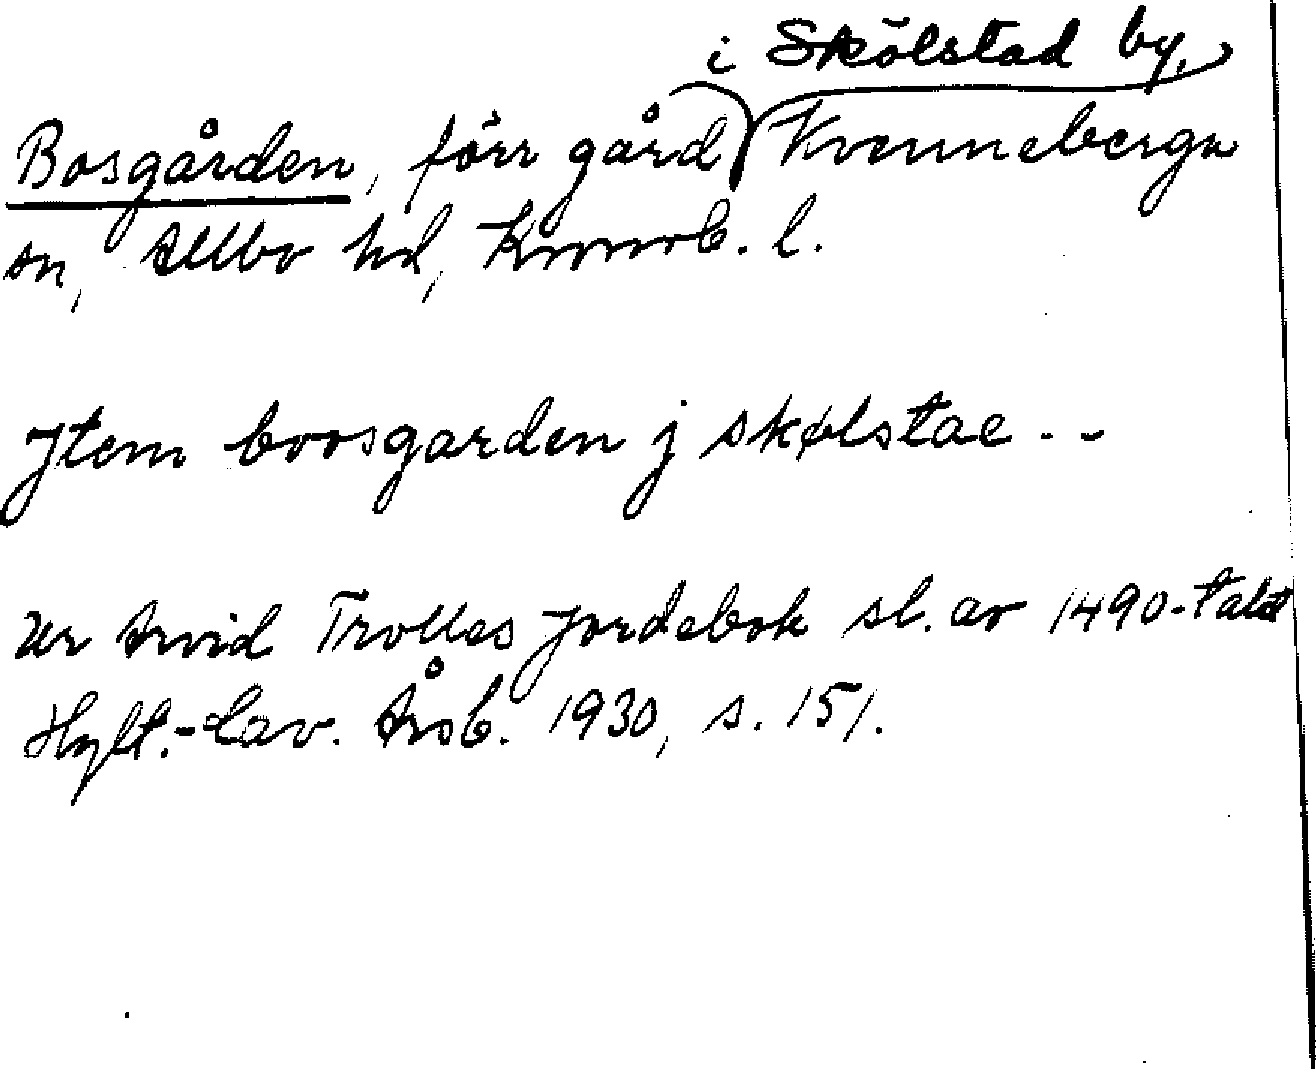 i Skölstad by,
Bosgården, förr gård Kvenneberga
sn, Allbo hd, Kronob. l.
Jtem boosgarden j skølstae - -
Ur Arvid Trolles Jordebok sl. av 1490-talet
Hylt.-Cav. Årsb. 1930, s. 151.